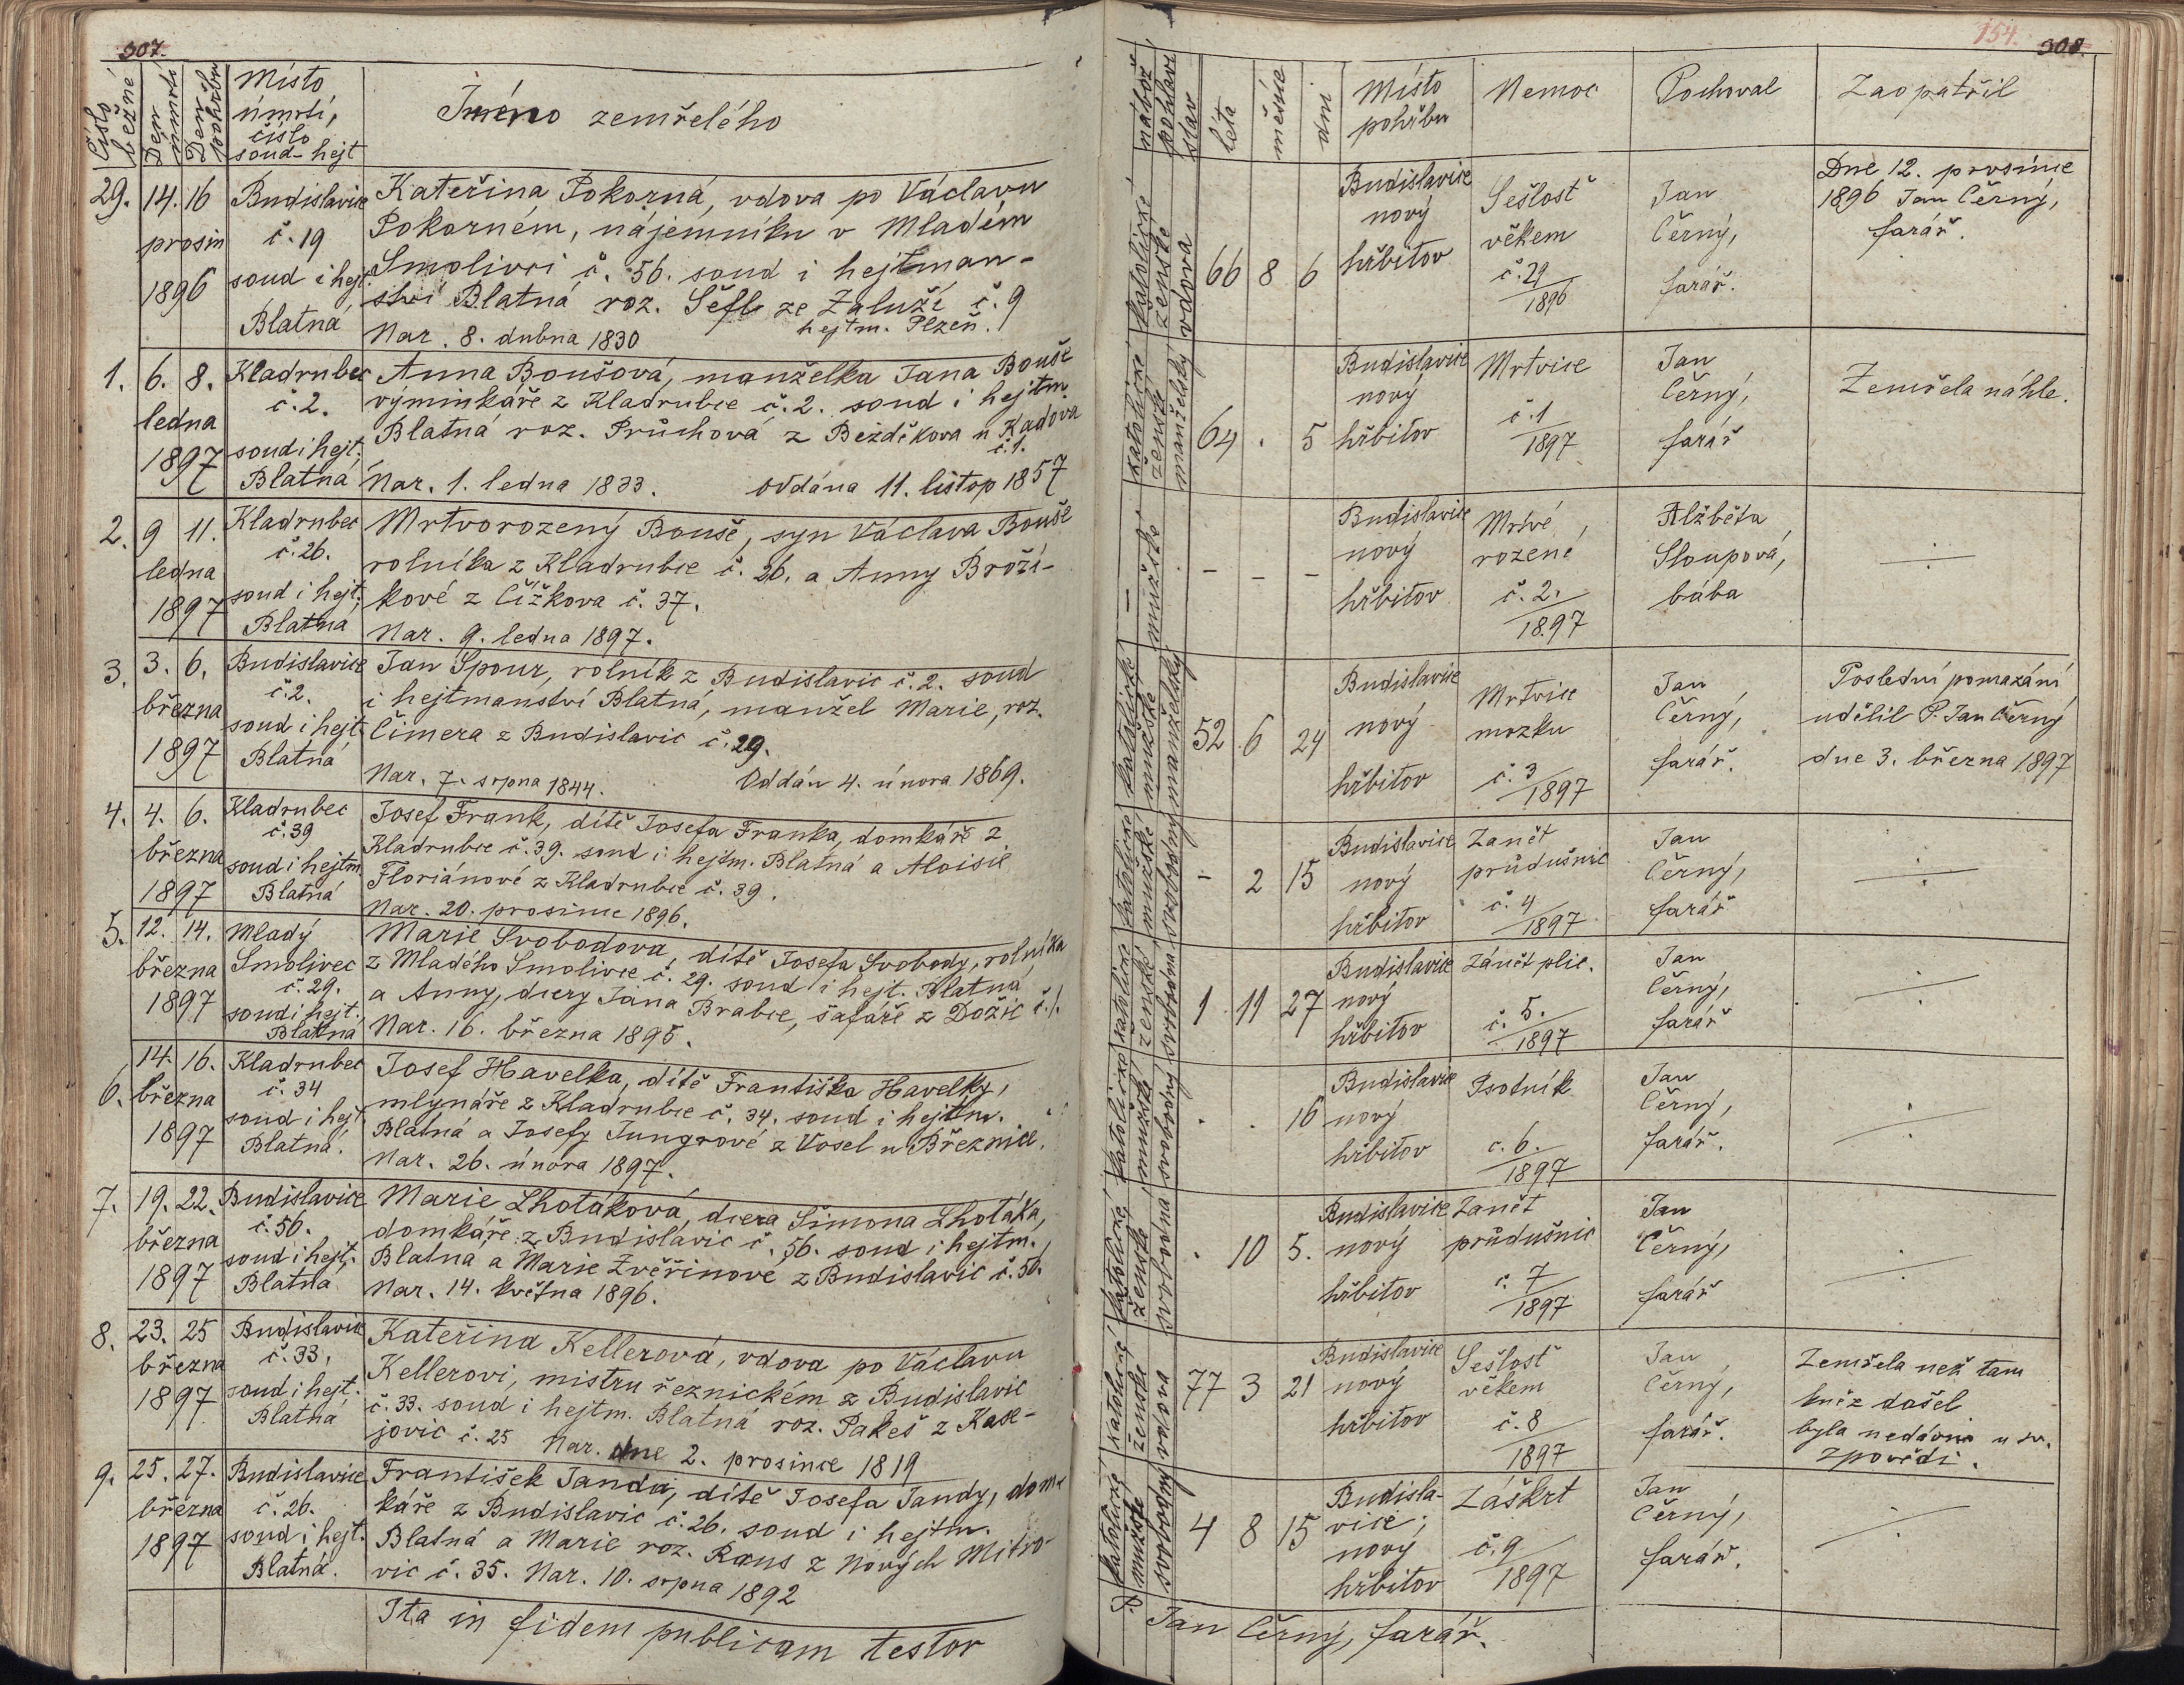 307.
Číslo běžné
Den úmrtí
Den pohřbu
Místo
úmrtí,
číslo
soud-hejt
Jméno zemřelého
29. 14. 16
prosin
1896
Budislavice
č. 19
soud i hejt.
Blatná
Kateřina Pokorná, vdova po Václavu
Pokorném, nájemníku v Mladém
Smolivci č. 56. soud i hejtman-
ství Blatná roz. Šefl ze Zaluží č. 9
hejtm. Plzeň.
Nar. 8. dubna 1830
1. 6. 8.
ledna
1897
Kladrubec
č. 2.
soud i hejt.
Blatná
Anna Boušová, manželka Jana Bouše
výminkáře z Kladrubce č. 2. soud i hejtm.
Blatná roz. Průchová z Bezděkova u Kadova
č. 1.
Nar. 1. ledna 1833. Oddána 11. listop 1857
2. 9 11.
ledna
1897
Kladrubec
č. 26.
soud i hejt.
Blatná
Mrtvorozený Bouše, syn Václava Bouše
rolníka z Kladrubce č. 26. a Anny Broží-
kové z Čížkova č. 37.
Nar. 9. ledna 1897.
3. 3. 6.
března
1897
Budislavice
č. 2.
soud i hejt.
Blatná
Jan Špour, rolník z Budislavic č. 2. soud
i hejtmanství Blatná, manžel Marie, roz.
Čimera z Budislavic č. 29.
Nar. 7. srpna 1844. Oddán 4. února 1869.
4. 4. 6.
března
1897
Kladrubec
č. 39
soud i hejtm.
Blatná
Josef Frank, dítě Josefa Franka, domkáře z
Kladrubce č. 39. soud i hejtm. Blatná a Aloisie
Floriánové z Kladrubce č. 39.
Nar. 20. prosince 1896.
5. 12. 14.
března
1897
Mladý
Smolivec
č. 29.
soud i hejt.
Blatná
Marie Svobodova, dítě Josefa Svobody, rolníka
z Mladého Smolivce č. 29. soud i hejt. Blatná
a Anny, dcery Jana Brabce, šafáře z Dožic č. 1.
Nar. 16. března 1895.
6. 14. 16.
března
1897
Kladrubec
č. 34
soud i hejt.
Blatná.
Josef Havelka, dítě Františka Havelky,
mlynáře z Kladrubce č. 34. soud i hejtm.
Blatná a Josefy Jungrové z Vosel u Březnice.
Nar. 26. února 1897.
7. 19. 22.
března
1897
Budislavice
č. 56.
soud i hejt.
Blatna
Marie Lhotáková, dcera Šimona Lhotáka,
domkáře z Budislavic č. 56. soud i hejtm.
Blatná a Marie Zvěřinové z Budislavic č. 50.
Nar. 14. května 1896.
8. 23. 25
března
1897
Budislavice
č. 33.
soud i hejt.
Blatná
Kateřina Kellerová, vdova po Václavu
Kellerovi, mistru řeznickém z Budislavic
č. 33. soud i hejtm. Blatná roz. Pakeš z Kase-
jovic č. 25 Nar. dne 2. prosince 1819
9. 25. 27.
března
1897
Budislavice
č. 26.
soud i hejt.
Blatná.
František Janda, dítě Josefa Jandy, dom-
káře z Budislavic č. 26. soud i hejtm.
Blatná a Marie roz. Raus z Nových Mitro-
vic č. 35. Nar. 10. srpna 1892
Ita in fidem publicam testor
154.
308.
nábož
pohlaví
stav
léta
měsíce
dni
Místo
pohřbu
Nemoc
Pochoval
Zaopatřil
katolické
ženské
vdova
66 8 6
Budislavice
nový
hřbitov
Sešlosť
věkem
č. 29
1896
Jan
Černý,
farář.
Dne 12. prosince
1896 Jan Černý,
farář.
katolické
ženské
manželský
64 . 5
Budislavice
nový
hřbitov
Mrtvice
č. 1
1897
Jan
Černý,
farář
Zemřela náhle.
—
mužské
- - -
Budislavice
nový
hřbitov
Mrtvé
rozené
č. 2.
1897
Alžběta
Sloupová,
bába
÷
katolické
mužské
manželský
52 6 24
Budislavice
nový
hřbitov
Mrtvice
mozku
č. 3
1897
Jan
Černý,
farář.
Poslední pomazání
udělil P. Jan Černý
dne 3. března 1897
katolické
mužské
svobodný
- 2 15
Budislavice
nový
hřbitov
Zanět
průdušnic
č. 4
1897
Jan
Černý,
farář
÷
katolické
ženské
svobodna
1 11 27
Budislavice
nový
hřbitov
Zánět plic.
č. 5.
1897
Jan
Černý,
farář
÷
katolické
mužské
svobodný
. . 16
Budislavice
nový
hřbitov
Psotník
č. 6.
1897
Jan
Černý,
farář.
÷
katolické
ženské
svobodna
. 10 5.
Budislavice
nový
hřbitov
Zanět
průdušnic
č. 7
1897
Jan
Černý,
farář
÷
katolické
ženské
vdova
77 3 21
Budislavice
nový
hřbitov
Sešlosť
věkem
č. 8
1897
Jan
Černý,
farář.
Zemřela než tam
kněz došel
byla nedávno u sv.
zpovědi.
katolické
mužské
svobodný
4 8 15
Budisla-
vice;
nový
hřbitov
Záškrt
č. 9
1897
Jan
Černý,
farář.
÷
Jan Černý, farář.